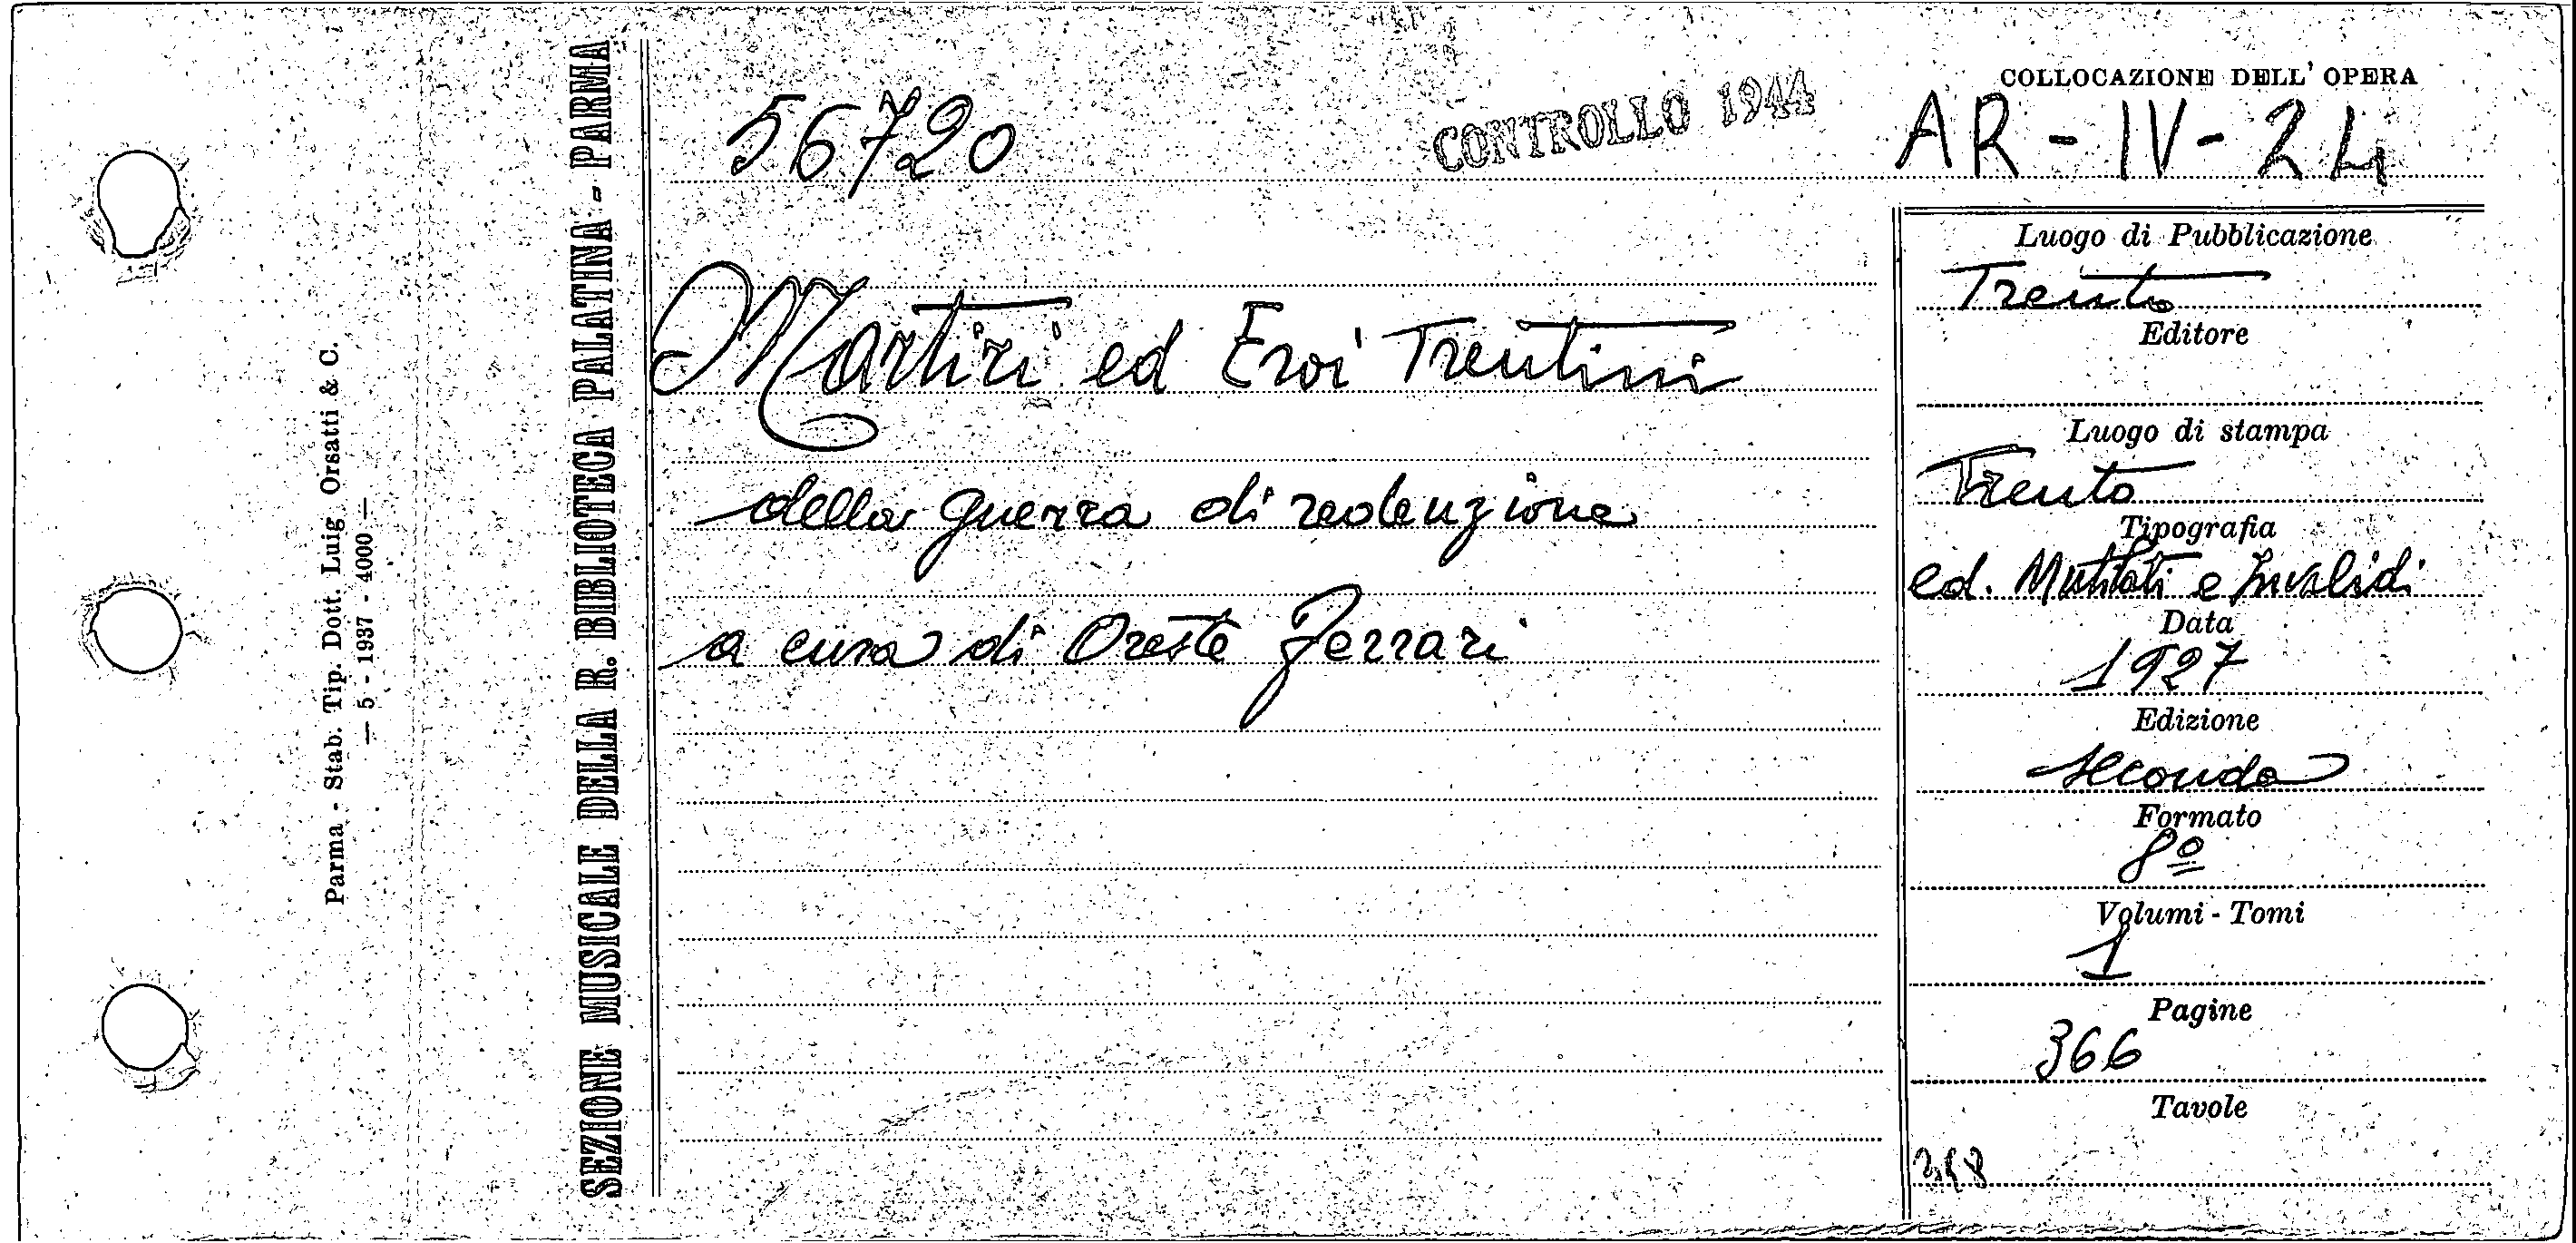 Parma - Stab. Tip. Dott. Luig. Orsatti & C.
— 5 - 1937 - 4000 —
SEZIONE MUSICALE DELLA R. BIBLIOTECA PALATINA - PARMA
56720
CONTROLLO 1944
COLLOCAZIONE DELL' OPERA
AR - IV - 24
Martiri ed Eroi Trentini
della guerra di redenzione
a cura di Oreste Ferrari
Luogo di Pubblicazione
Trento
Editore
Luogo di stampa
Trento
Tipografia
ed. Mutilati e Invalidi
Data
1927
Edizione
seconda
Formato
8º
Volumi - Tomi
1
Pagine
366
Tavole